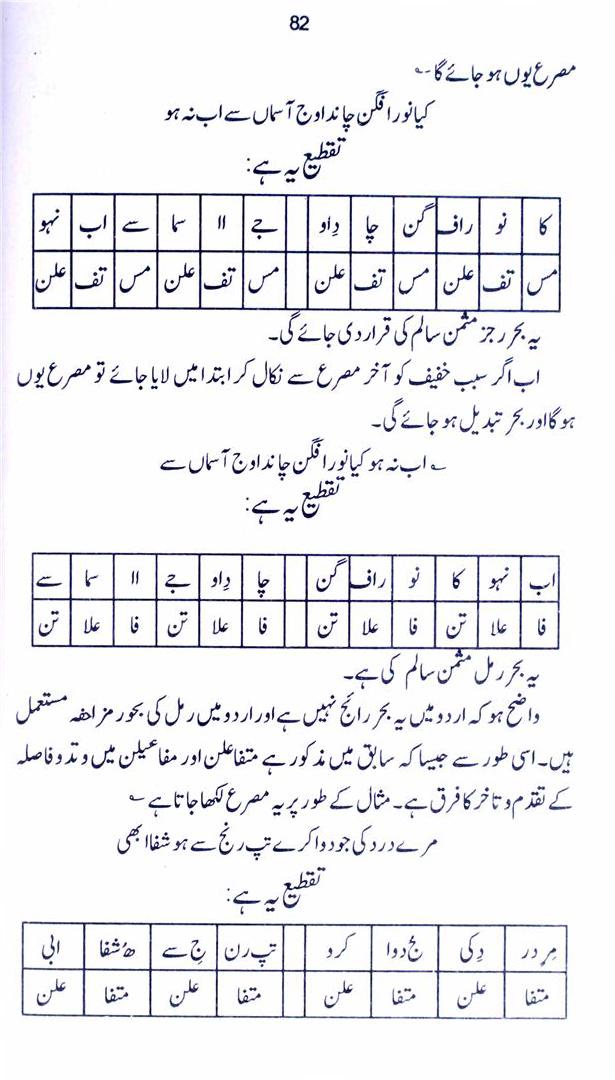 82
مصرع یوں ہو جائے گا۔؎
کیا نور افگن چاند اوج آسماں سے اب نہ ہو
تقطیع یہ ہے:
کا نو راف گن چا دِاو جے اا سما سے اب نہو
مس تف علن مس تف علن مس تف علن مس تف علن
یہ بحر رجز مثمن سالم کی قرار دی جائے گی۔
اب اگر سبب خفیف کو آخر مصرع سے نکال کر ابتدا میں لایا جائے تو مصرع یوں
ہوگا اور بحر تبدیل ہو جائے گی۔
؎ اب نہ ہو کیا نور افگن چاند اوج آسماں سے
تقطیع یہ ہے:
اب نہو کا نو راف گن چا دِاو جے اا سما سے
فا علا تن فا علا تن فا علا تن فا علا تن
یہ بحر رمل مثمن سالم کی ہے۔
واضح ہو کہ اردو میں یہ بحر رائج نہیں ہے اور اردو میں رمل کی بحور مزاحفہ مستعمل
ہیں۔ اسی طور سے جیسا کہ سابق میں مذکور ہے متفاعلن اور مفاعیلن میں وتد و فاصلہ
کے تقدم و تاخر کا فرق ہے۔ مثال کے طور پر یہ مصرع لکھا جاتا ہے ؎
مرے درد کی جو دوا کرے تپ رنج سے ہو شفا ابھی
تقطیع یہ ہے:
مِر در دِکی جُ دوا کرو تپ رن جِ سے ھُ شفا ابی
متفا علن متفا علن متفا علن متفا علن